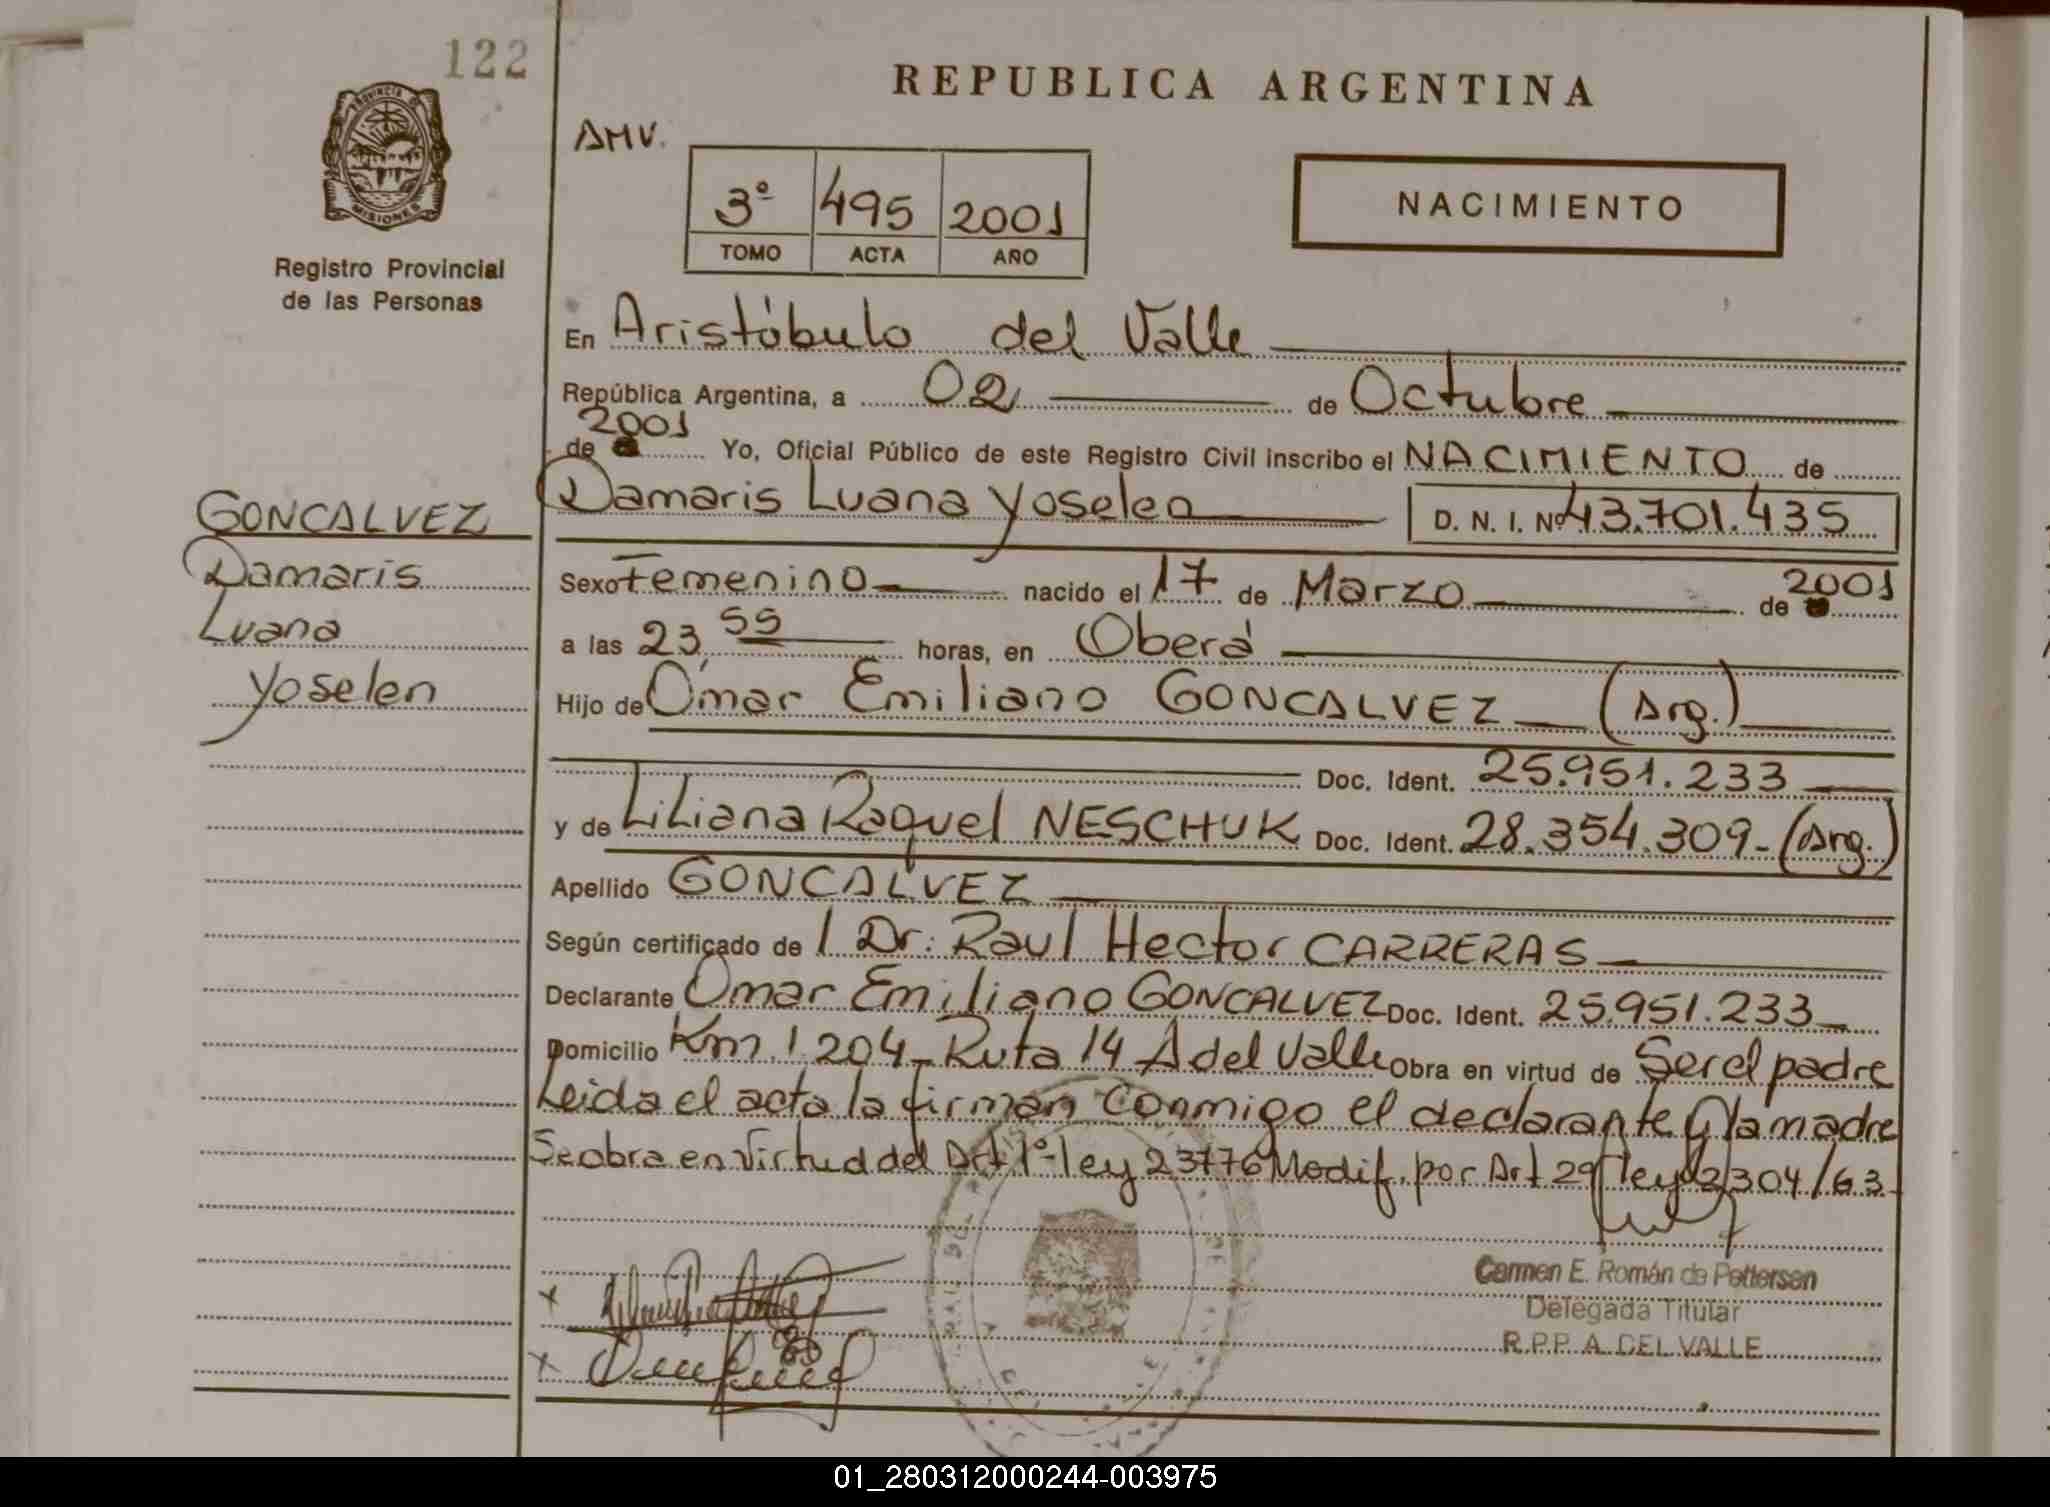 122
REPUBLICA ARGENTINA
PROVINCIA DE
MISIONES
Registro Provincial
de las Personas
AMV.
3º 495 2001
TOMO ACTA AÑO
NACIMIENTO
En Aristóbulo del Valle
República Argentina, a 02 de Octubre
de 2001 Yo, Oficial Público de este Registro Civil inscribo el NACIMIENTO de
Damaris Luana Yoselen D. N. I. Nº 43.701.435
GONCALVEZ
Damaris
Luana
Yoselen
Sexo Femenino nacido el 17 de Marzo de 2001
a las 23,55 horas, en Oberá
Hijo de Omar Emiliano GONCALVEZ (Arg.)
Doc. Ident. 25.951.233
y de Liliana Raquel NESCHUK Doc. Ident. 28.354.309-(Arg.)
Apellido GONCALVEZ
Según certificado de l Dr: Raul Hector CARRERAS
Declarante Omar Emiliano GONCALVEZ Doc. Ident. 25.951.233
Domicilio Km. 1.204-Ruta 14 A del Valle Obra en virtud de Ser el padre
Leida el acta la firman conmigo el declarante y la madre
Se obra en Virtud del Art 1º ley 23776 Modif. por Art 29 ley 2304/63
Carmen E. Román de Pettersen
Delegada Titular
R.P.P. A. DEL VALLE
01_280312000244-003975